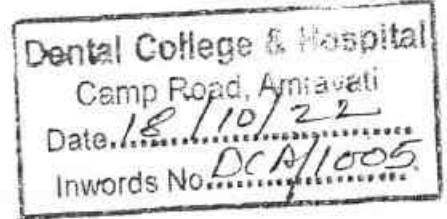 Dental College & Hospital
Camp Road, Amravati
Date. 18/10/22
Inwords No. DCA/1005